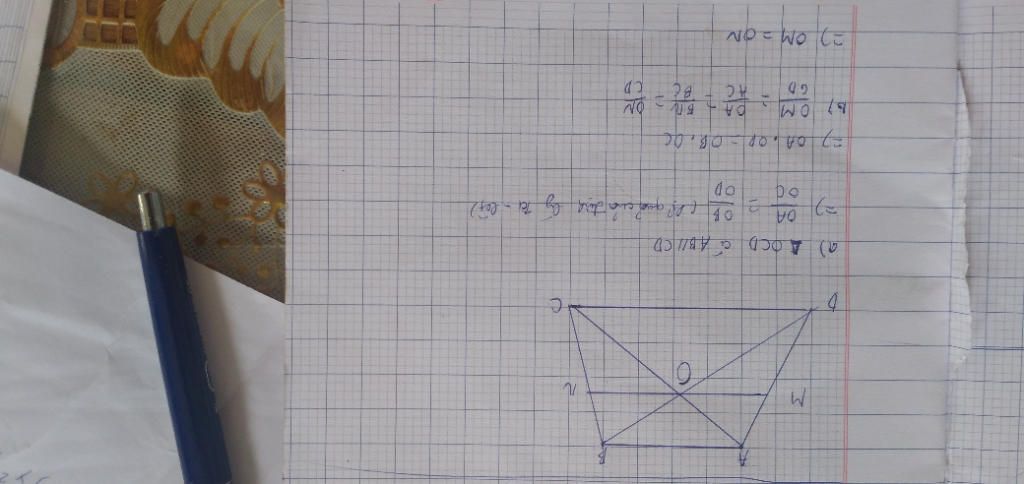 A B
M O N
D C
a) Δ OCD có AB//CD
=> OA/OC = OB/OD (hệ quả của định lý Ta-lét)
=> OA.OD = OB.OC
b) OM/CD = OA/AC = BN/BC = ON/CD
=> OM = ON